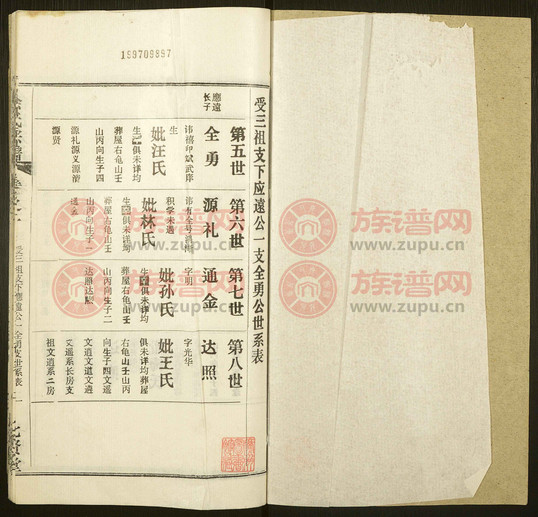 199709857
受三祖支下应遠公一支全勇公世系表
第五世
第六世
第七世
第八世
應遠
长子
全勇
源礼
通金
达照
讳禧印斌武庠
生
妣汪氏
生
俱未详均
葬屋右龟山壬
山丙向生子四
源礼源义源清
源贤
积学未遇
妣林氏
生
俱未详均
葬屋右龟山壬
山丙向生子一
字明
妣孙氏
生
俱未详均
葬屋右龟山壬
山丙向生子二
达照达
字光华
妣王氏
俱未详均葬屋
右龟山壬山丙
向生子四文遥
文道文道文逍
文遥系长房支
祖文道系二房
受三祖支下應遠公一全勇支世系表
族谱网
www.zupu.cn
族谱网
www.zupu.cn
族谱网
www.zupu.cn
族谱网
www.zupu.cn